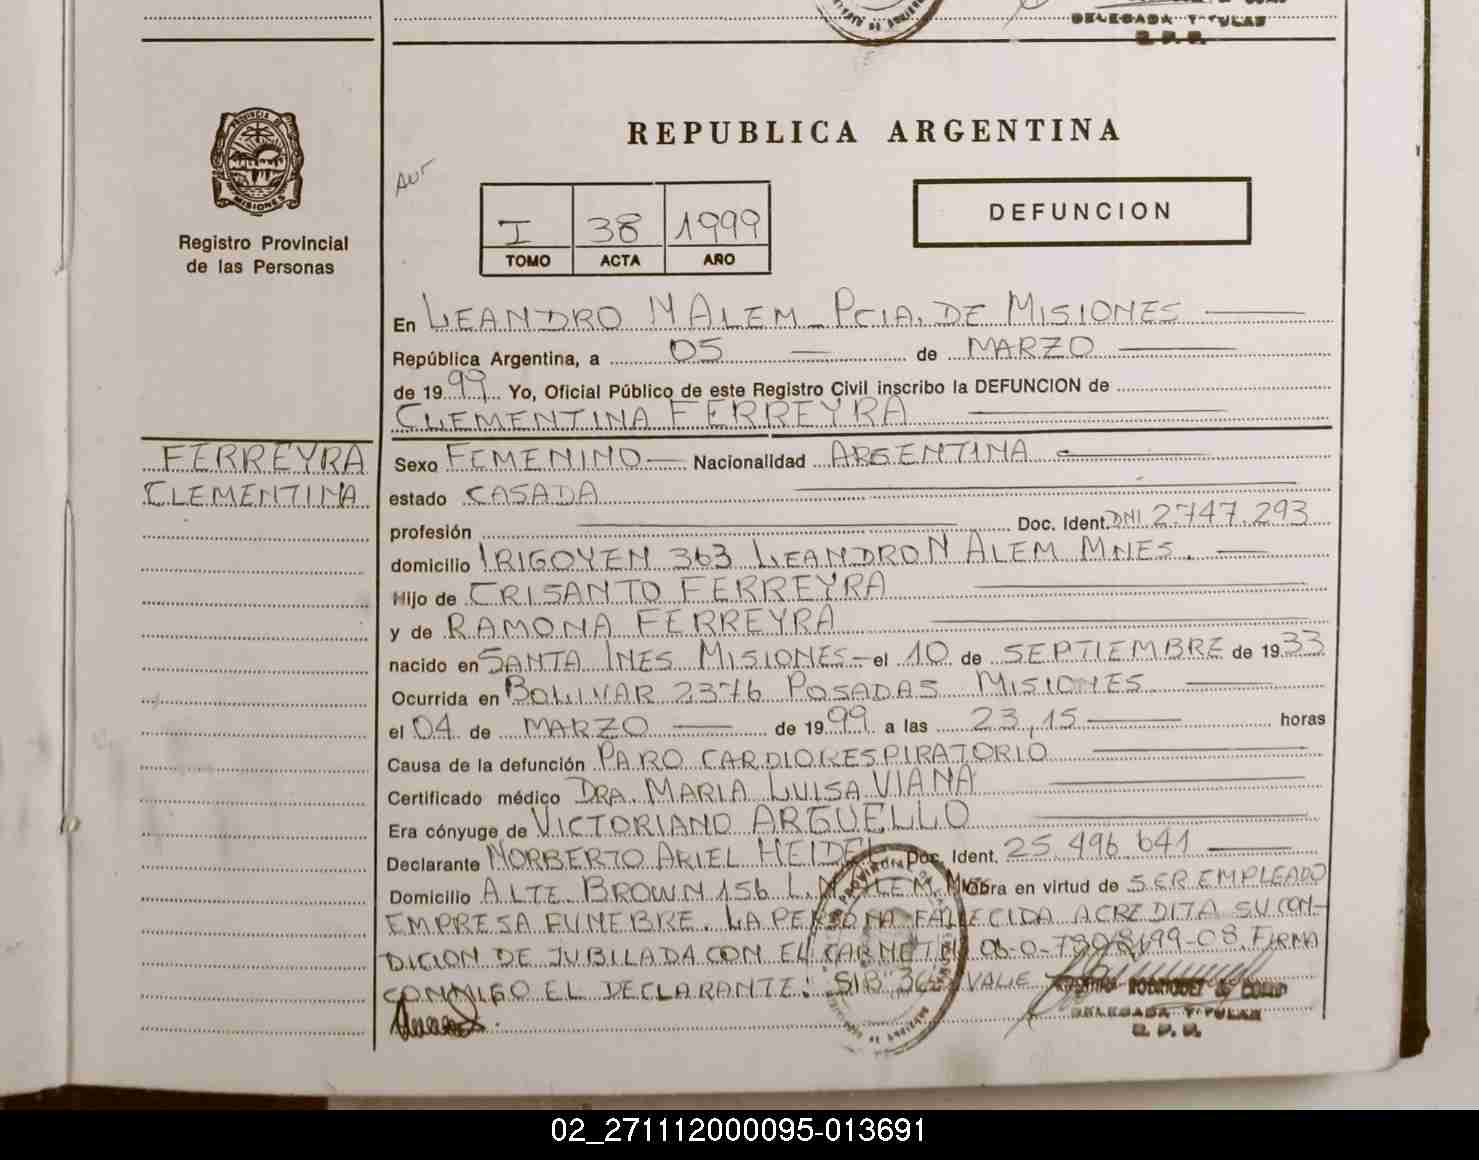 DELEGADA TITULAR
R. P. P.
PROVINCIA DE
MISIONES
Registro Provincial
de las Personas
REPUBLICA ARGENTINA
I 38 1999
TOMO ACTA AÑO
DEFUNCION
En LEANDRO N ALEM - PCIA. DE MISIONES
República Argentina, a 05 de MARZO
de 1999. Yo, Oficial Público de este Registro Civil inscribo la DEFUNCION de
CLEMENTINA FERREYRA
FERREYRA
CLEMENTINA
Sexo FEMENINO Nacionalidad ARGENTINA
estado CASADA
profesión Doc. Ident. DNI 2.747.293
domicilio IRIGOYEN 363 LEANDRO N ALEM MNES.
Hijo de CRISANTO FERREYRA
y de RAMONA FERREYRA
nacido en SANTA INES MISIONES - el 10 de SEPTIEMBRE de 1933
Ocurrida en BOLIVAR 2376 POSADAS MISIONES
el 04 de MARZO de 1999 a las 23,15 horas
Causa de la defunción PARO CARDIORESPIRATORIO
Certificado médico DRA. MARIA LUISA VIANA
Era cónyuge de VICTORIANO ARGUELLO
Declarante NORBERTO ARIEL HEIDEL Doc. Ident. 25.496.641
Domicilio ALTE. BROWN 156 L.N. ALEM. MNES Obra en virtud de SER EMPLEADO
EMPRESA FUNEBRE. LA PERSONA FALLECIDA ACREDITA SU CON-
DICION DE JUBILADA CON EL CARNET Nº FIRMA
CONMIGO EL DECLARANTE: VALE
RODRIGUEZ DE
DELEGADA TITULAR
R. P. P.
02_271112000095-013691